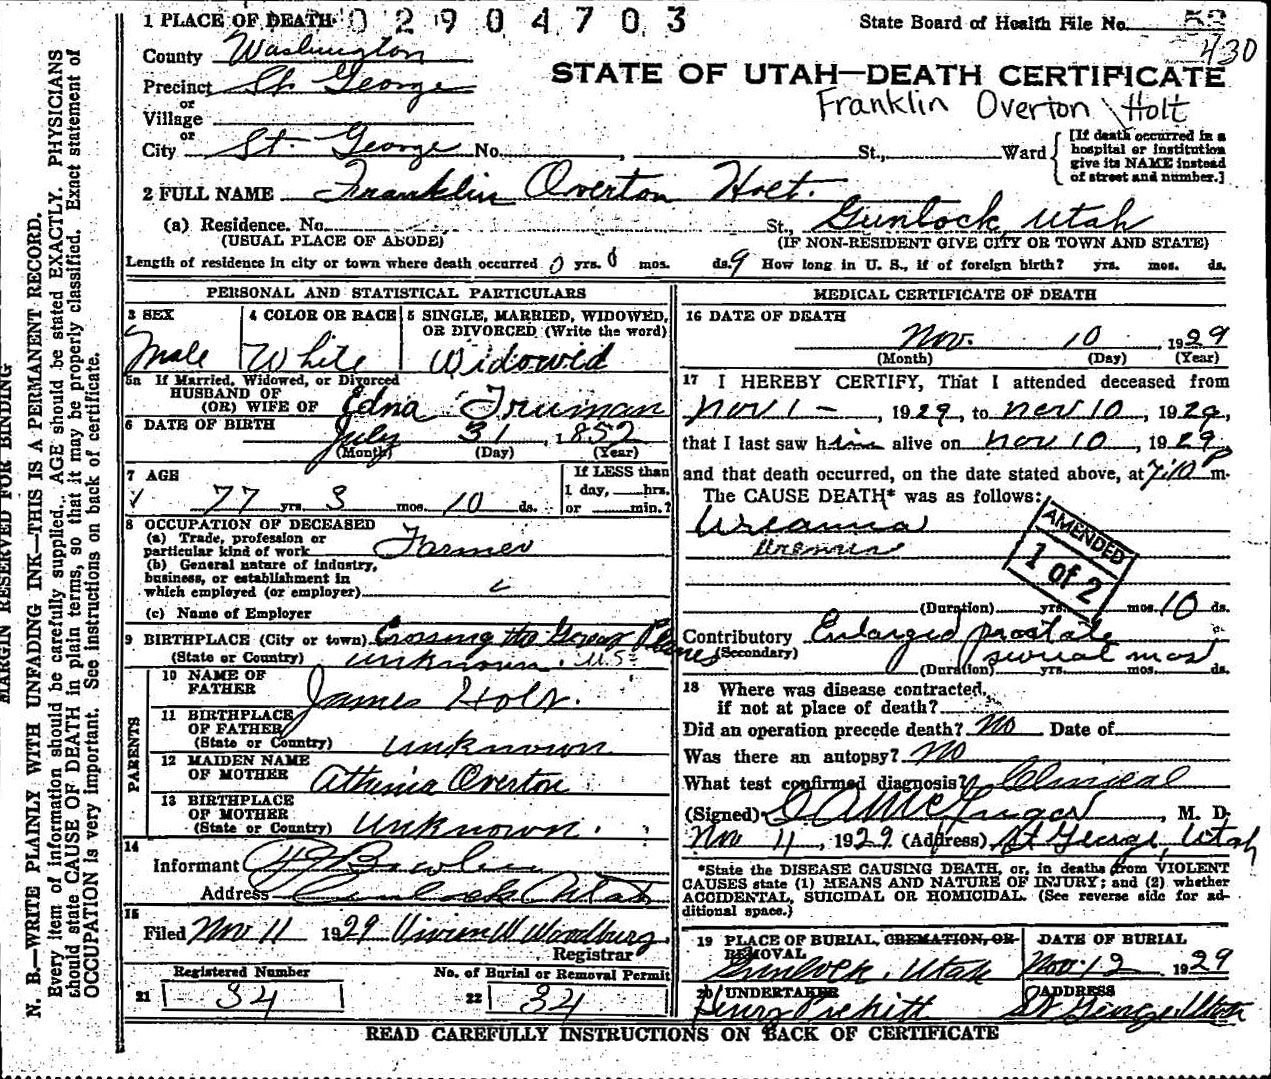 1 PLACE OF DEATH 0 2 9 0 4 7 0 3 State Board of Health File No. 52
430
County Washington
STATE OF UTAH—DEATH CERTIFICATE
Precinct St. George
or
Franklin Overton Holt
Village
or
City St. George No. , St., Ward
[If death occurred in a hospital or institution give its NAME instead of street and number.]
2 FULL NAME Franklin Overton Holt.
(a) Residence. No. St., Gunlock, Utah
(USUAL PLACE OF ABODE) (IF NON-RESIDENT GIVE CITY OR TOWN AND STATE)
Length of residence in city or town where death occurred 0 yrs. 0 mos. ds. 9 How long in U. S., if of foreign birth? yrs. mos. ds.
PERSONAL AND STATISTICAL PARTICULARS
3 SEX 4 COLOR OR RACE 5 SINGLE, MARRIED, WIDOWED, OR DIVORCED (Write the word)
Male White Widowid
5a If Married, Widowed, or Divorced
HUSBAND OF
(OR) WIFE OF Edna Truman
6 DATE OF BIRTH July 31, 1852
(Month) (Day) (Year)
7 AGE If LESS than
1 day, hrs.
77 yrs. 3 mos. 10 ds. or min.?
8 OCCUPATION OF DECEASED
(a) Trade, profession or
particular kind of work Farmer
(b) General nature of industry,
business, or establishment in
which employed (or employer)
(c) Name of Employer
9 BIRTHPLACE (City or town) Crossing the Great Plaines
(State or Country) unknown. U.S.
PARENTS
10 NAME OF
FATHER James Holt.
11 BIRTHPLACE
OF FATHER
(State or Country) unknown
12 MAIDEN NAME
OF MOTHER Athinia Overton
13 BIRTHPLACE
OF MOTHER
(State or Country) unknown.
14
Informant Bowler
Address Gunlock Utah
15
Filed Nov 11 1929 Vivien W Woodbury.
Registrar
Registered Number No. of Burial or Removal Permit
21 34 22 34
MEDICAL CERTIFICATE OF DEATH
16 DATE OF DEATH
Nov. 10 , 1929
(Month) (Day) (Year)
17 I HEREBY CERTIFY, That I attended deceased from
Nov 1 - , 1929, to Nov 10, 1929,
that I last saw him alive on Nov 10, 1929
and that death occurred, on the date stated above, at 7:10 P m.
The CAUSE DEATH* was as follows:
Ureamia
Uremia
AMENDED
1 of 2
(Duration) yrs. mos. 10 ds.
Contributory Enlarged prostate
(Secondary) several mos
(Duration) yrs. mos. ds.
18 Where was disease contracted,
if not at place of death?
Did an operation precede death? No Date of
Was there an autopsy? No
What test confirmed diagnosis? Clinical
(Signed) McGregor, M. D.
Nov 11, 1929 (Address) St George, Utah
*State the DISEASE CAUSING DEATH, or, in deaths from VIOLENT
CAUSES state (1) MEANS AND NATURE OF INJURY; and (2) whether
ACCIDENTAL, SUICIDAL OR HOMICIDAL. (See reverse side for ad-
ditional space.)
19 PLACE OF BURIAL, CREMATION, OR REMOVAL DATE OF BURIAL
Gunlock, Utah Nov. 12 1929
20 UNDERTAKER ADDRESS
Henry Pickitt St George, Utah
READ CAREFULLY INSTRUCTIONS ON BACK OF CERTIFICATE
MARGIN RESERVED FOR BINDING
N. B.—WRITE PLAINLY WITH UNFADING INK—THIS IS A PERMANENT RECORD.
Every item of information should be carefully supplied. AGE should be stated EXACTLY. PHYSICIANS
should state CAUSE OF DEATH in plain terms, so that it may be properly classified. Exact statement of
OCCUPATION is very important. See instructions on back of certificate.